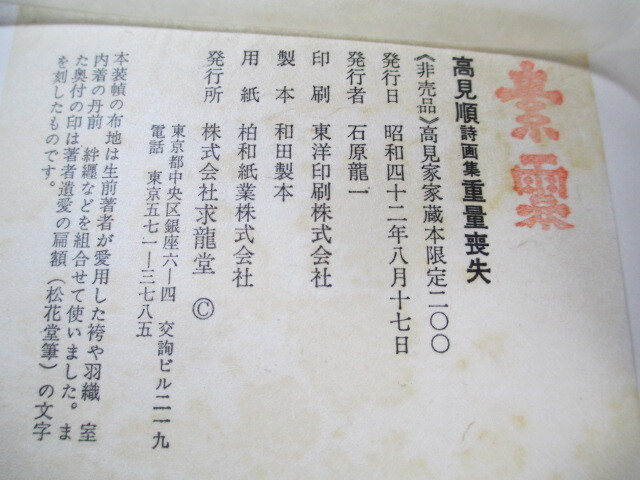 高見順詩画集重量喪失
《非売品》高見家家蔵本限定二〇〇
発行日 昭和四十二年八月十七日
発行者 石原龍一
印刷 東洋印刷株式会社
製本 和田製本
用紙 柏和紙業株式会社
発行所 株式会社求龍堂 ©
東京都中央区銀座六—四 交詢ビル二一九
電話 東京五七一—三七八五
本装幀の布地は生前著者が愛用した袴や羽織 室
内着の丹前 絆纏などを組合せて使いました。ま
た奥付の印は著者遺愛の扁額（松花堂筆）の文字
を刻したものです。